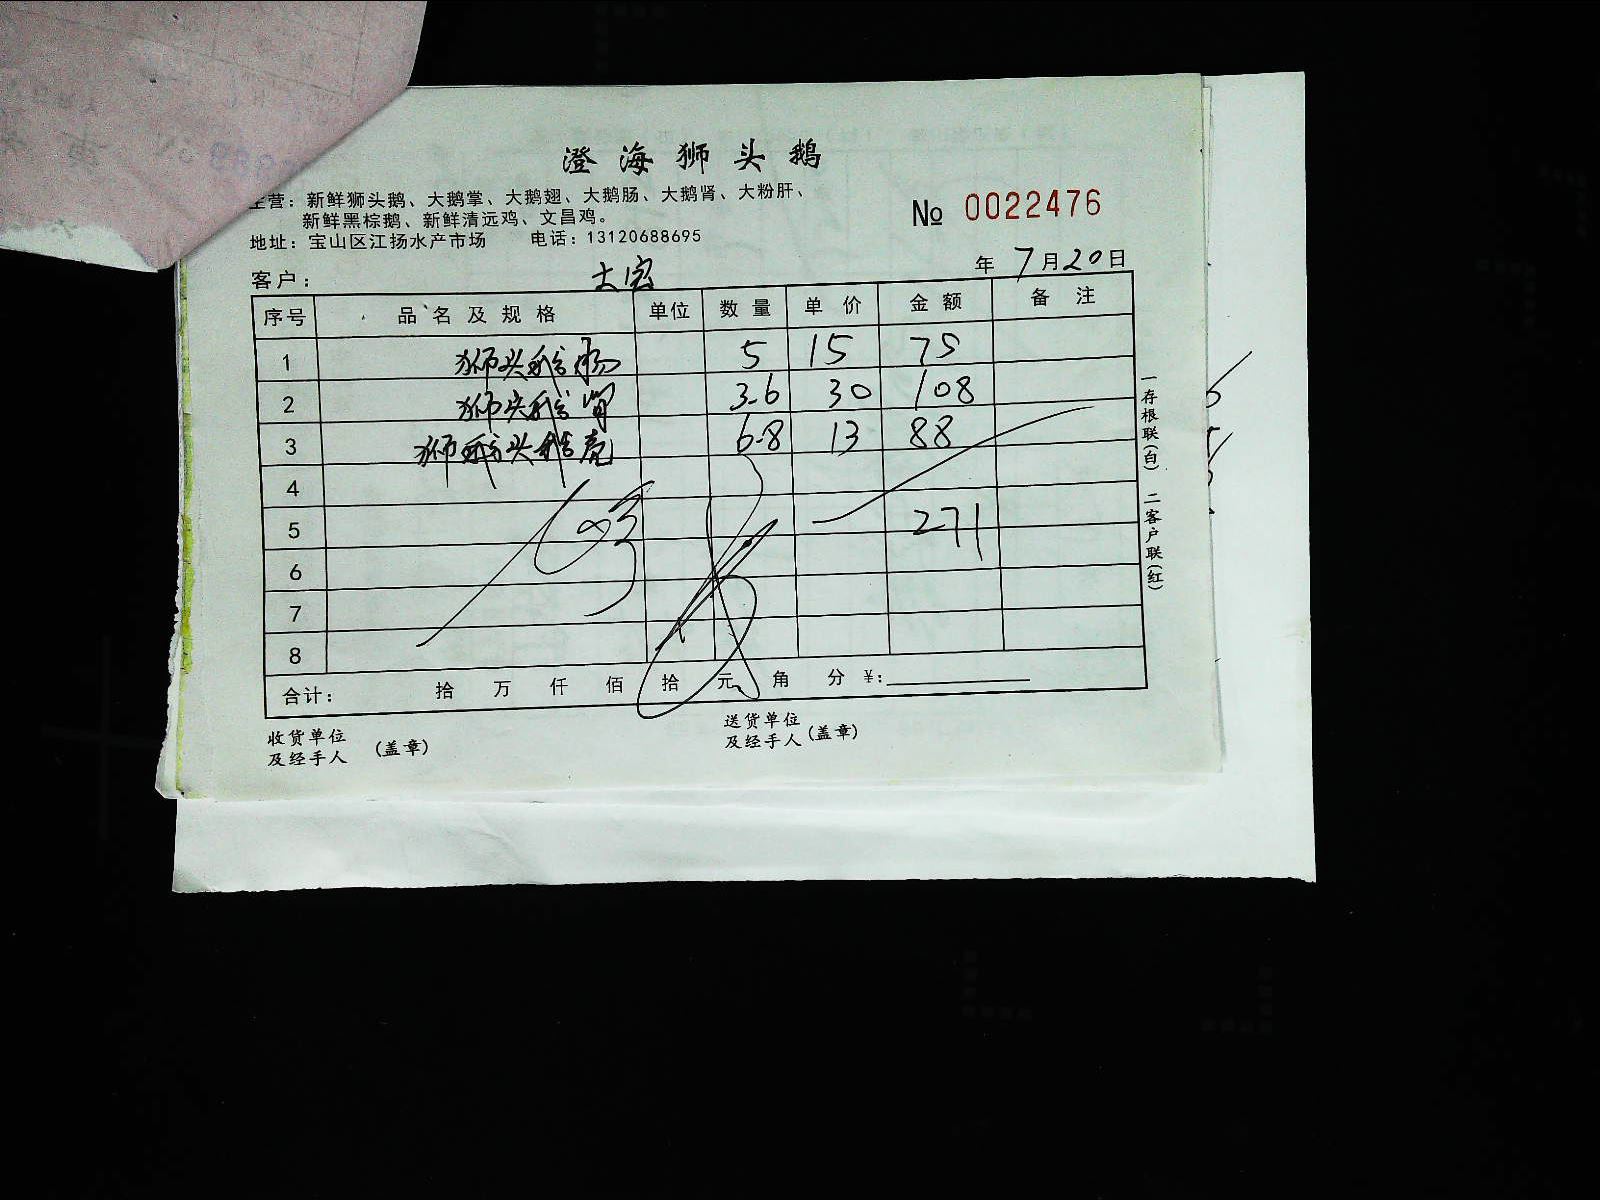 澄海狮头鹅
主营：新鲜狮头鹅、大鹅掌、大鹅翅、大鹅肠、大鹅肾、大粉肝、
新鲜黑棕鹅、新鲜清远鸡、文昌鸡。
№ 0022476
地址：宝山区江扬水产市场 电话：13120688695
客户： 大宏 年 7月20日
序号 品名及规格 单位 数量 单价 金额 备注
1 狮头鹅肠 5 15 75
2 狮头鹅肾 3.6 30 108
3 狮头鹅 6.8 13 88
4
5 271
6
7
8
合计： 拾 万 仟 佰 拾 元 角 分 ¥：
收货单位
及经手人 (盖章)
送货单位
及经手人 (盖章)
一存根联(白) 二客户联(红)